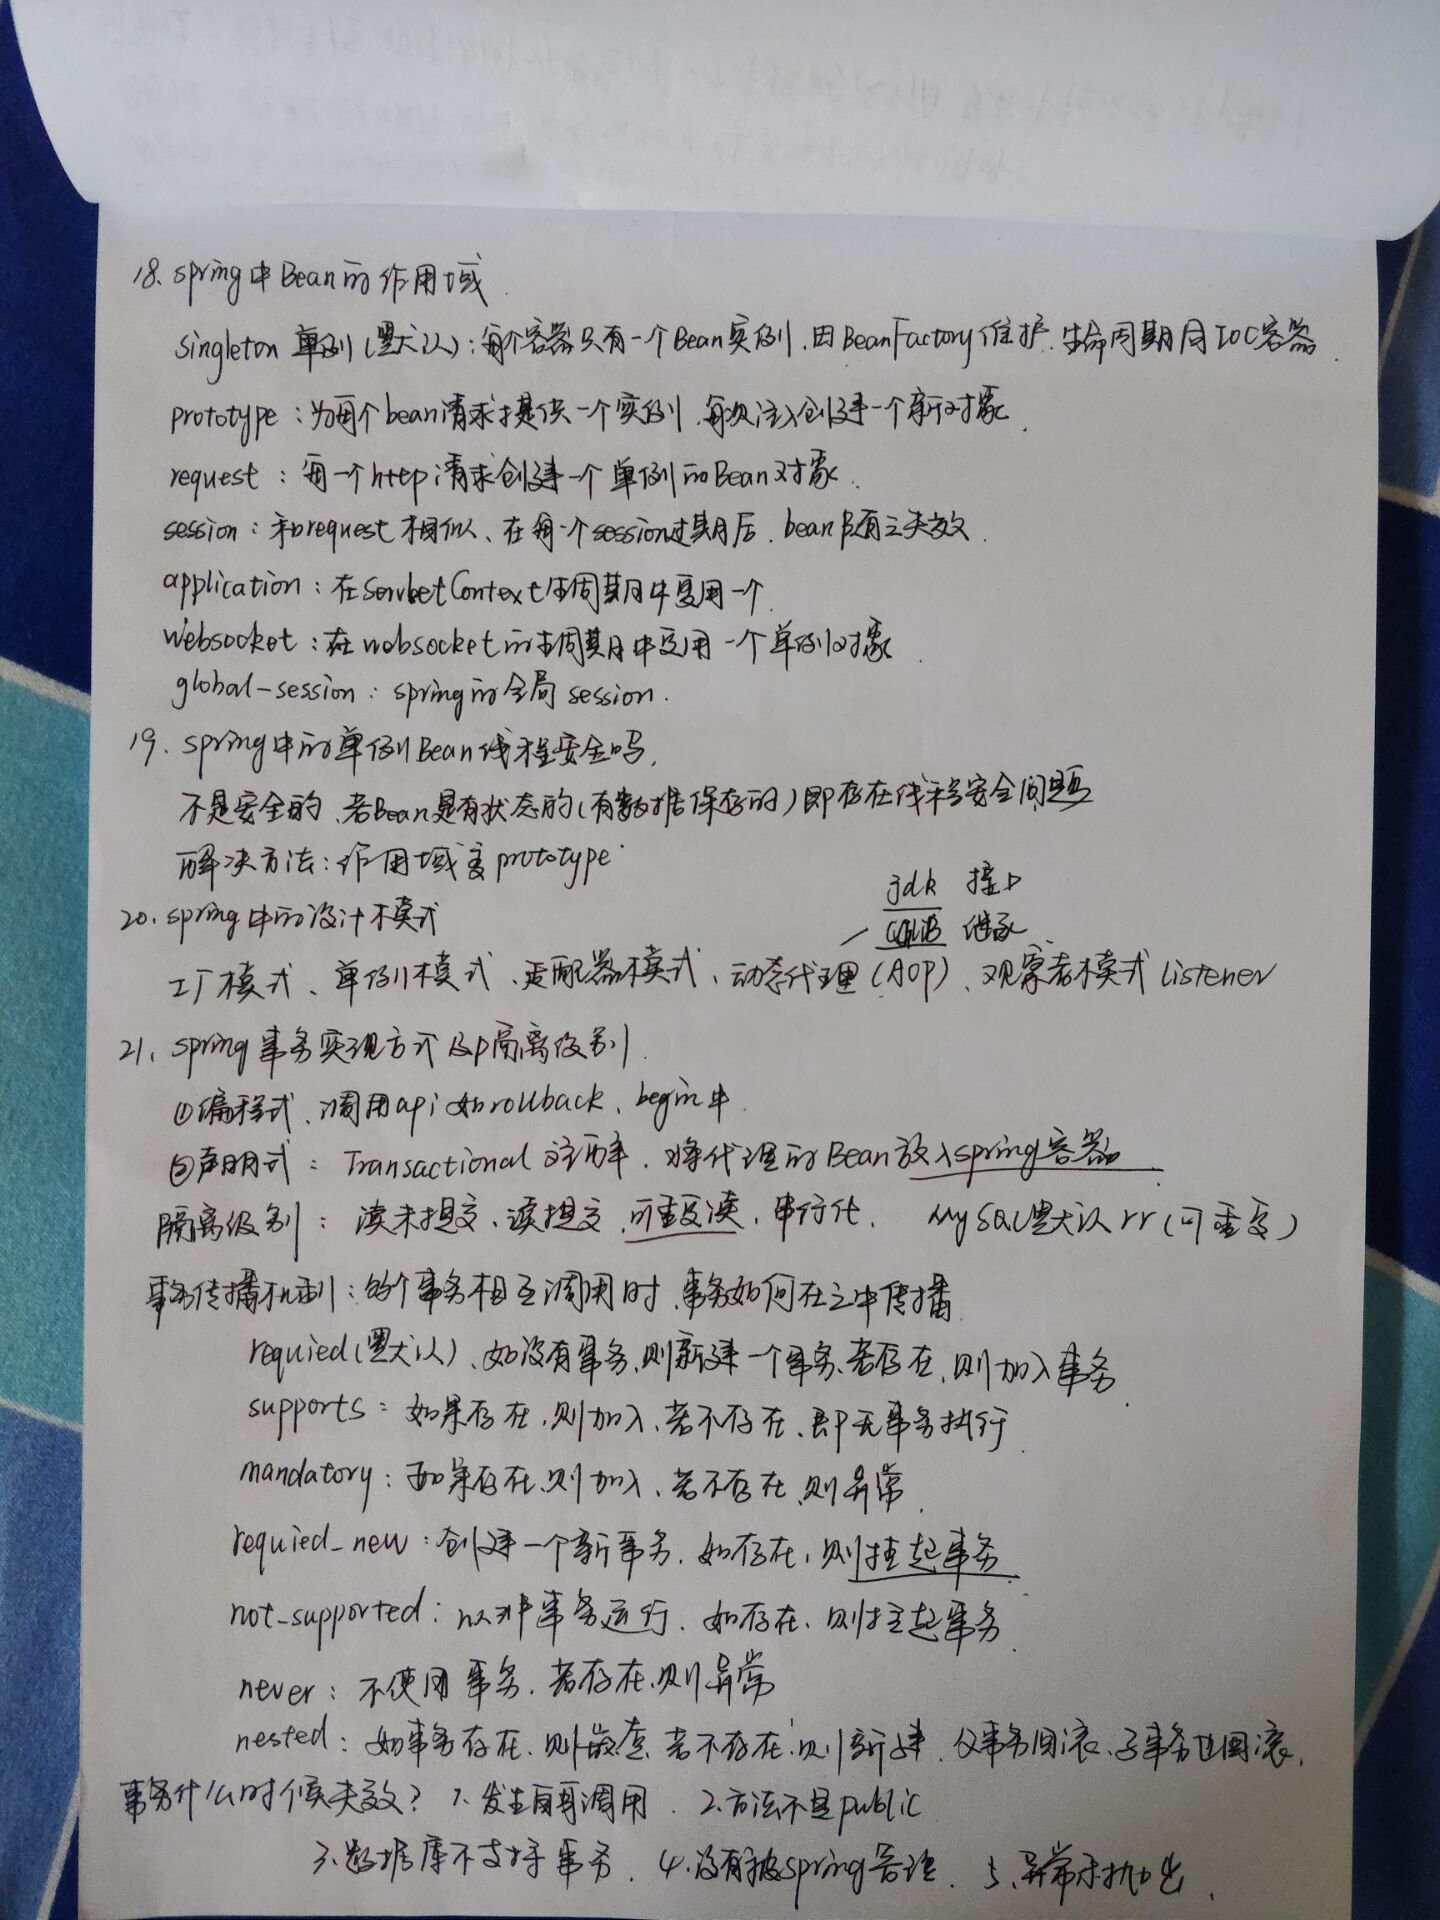 18. spring中Bean的作用域.
singleton 单例(默认):每个容器只有一个Bean实例.由BeanFactory维护.生命周期同IOC容器.
prototype:为每个bean请求提供一个实例.每次注入创建一个新对象.
request:每一个http请求创建一个单例的Bean对象.
session:和request相似、在每一个session过期后.bean随之失效.
application:在ServletContext生周期中复用一个.
websocket:在websocket的生周期中复用一个单例对象.
global-session:spring的全局session.
19. spring中的单例Bean线程安全吗.
不是安全的.若Bean是有状态的(有数据保存的)即存在线程安全问题
解决方法:作用域变prototype.
jdk 接口
CGLIB 继承
20. spring中的设计模式
工厂模式、单例模式、适配器模式、动态代理(AOP)、观察者模式listener
21. spring事务实现方式及隔离级别.
①编程式、调用api如rollback、begin中.
②声明式:Transactional注解.将代理的Bean放入spring容器
隔离级别:读未提交、读提交.可重复读.串行化. MySQL默认rr(可重复)
事务传播机制:多个事务相互调用时.事务如何在之中传播.
requied(默认)、如没有事务.则新建一个事务.若存在.则加入事务.
supports:如果存在.则加入.若不存在.即无事务执行
mandatory:如果存在.则加入.若不存在.则异常.
requied_new:创建一个新事务.如存在.则挂起事务.
not_supported:以非事务运行.如存在.则挂起事务.
never:不使用事务.若存在.则异常
nested:如事务存在.则嵌套.若不存在.则新建.父事务回滚、子事务也回滚.
事务什么时候失效? 1.发生自我调用. 2.方法不是public.
3.数据库不支持事务. 4.没有被spring管理. 5.异常未抛出.